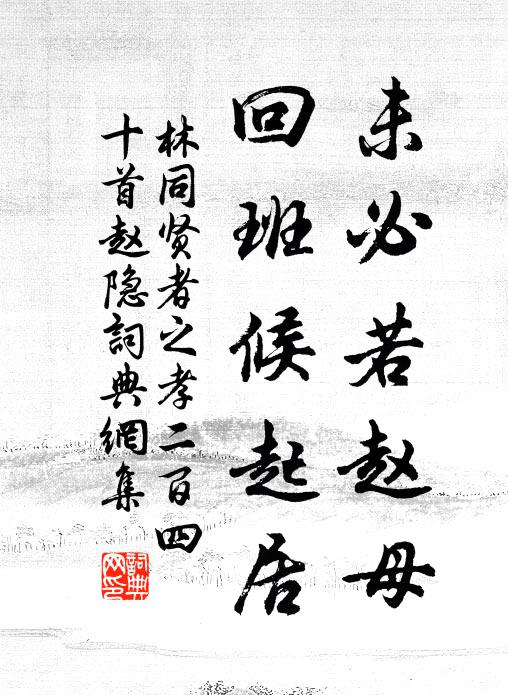 未必若赵母
回班候起居
林同贤者之孝二百四
十首赵隐詞典網集
詞典
网印